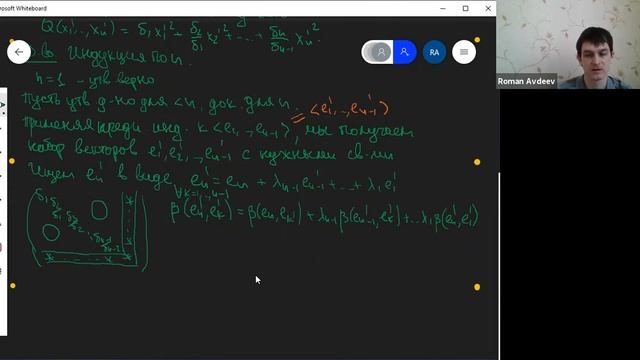 Microsoft Whiteboard
Q(x₁',..,xₙ') = δ₁x₁'² + δ₂/δ₁ x₂'² + ... + δₙ/δₙ₋₁ xₙ'².
Roman Avdeev
RA
Д-во Индукция по n.
n=1 – утв верно
Пусть утв д-но для <n, док. для n. = <e₁',..,eₙ₋₁'>
Применяя предп инд. к <e₁,..,eₙ₋₁>, мы получаем
набор векторов e₁', e₂',..,eₙ₋₁' с нужными св-ми
Ищем eₙ' в виде eₙ' = eₙ + λₙ₋₁eₙ₋₁' + ... + λ₁e₁'
∀k=1,..,n-1
β(eₙ', eₖ') = β(eₙ, eₖ') + λₙ₋₁β(eₙ₋₁', eₖ') + ... λ₁β(
δ₁ δ₂/δ₁ 0 *
0 δₙ₋₁/δₙ₋₂ *
* ..... * *